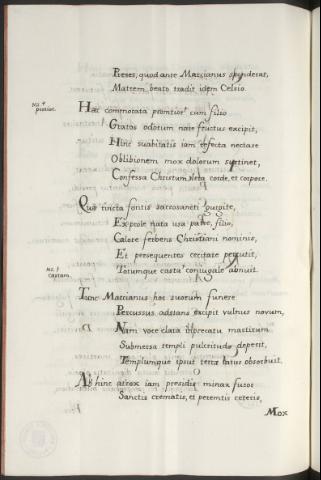 Preses, quod ante Marcianus spoponderat,
Matrem beato tradit idem Celso.
Hæc commonita promtior cum filio
Gratos odorum nare fructus excipit,
Hinc suavitatis iam refecta nectare
Oblibionem mox dolorum sustinet,
Confessa Christum corde, et corpore.
Quo tincta fontis sacrosancti gurgite,
Ex prole nata usa patre filio,
Calore ferbens Christiani nominis,
Et persequentes cecitate percutit,
Totumque casta coniugale abnuit.
Tunc Marcianus hoc suorum funere
Percussus, adstans excipit vulnus novum,
Nam voce clara inprecatu martirum
Submersa templi pulcritudo deperit,
Templumque ipsut terra latus obsorbuit.
Ab hinc atrox iam presidis minax furor
Sanctis crematis, et peremtis ceteris,
Mox